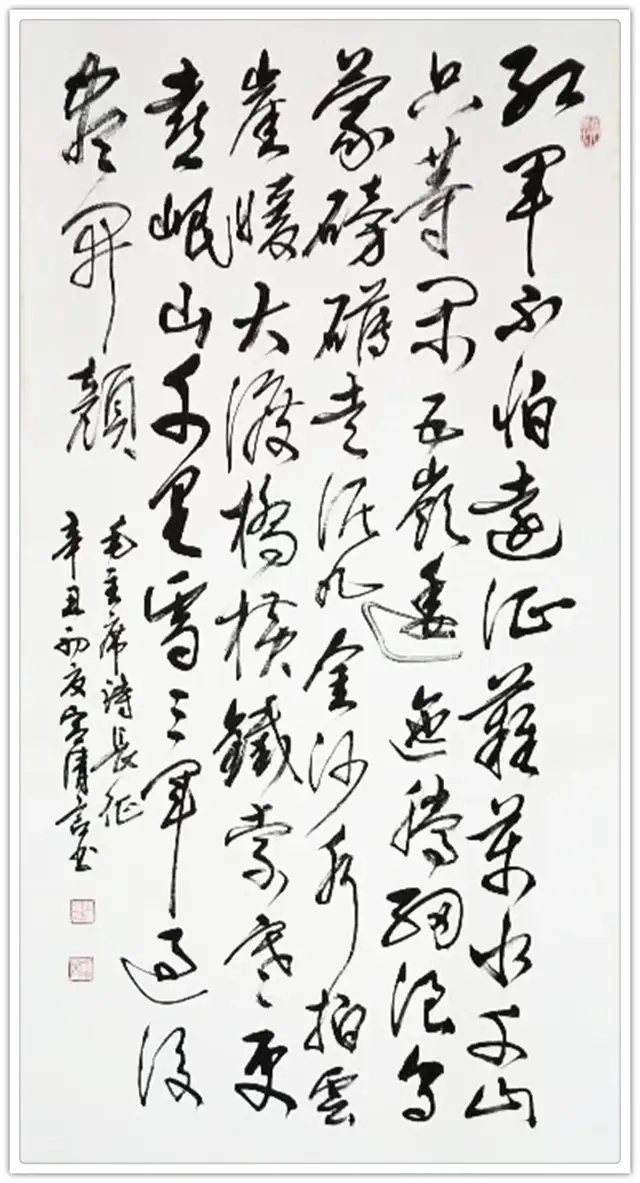 紅軍不怕遠征難萬水千山
只等閑五嶺逶迤騰細浪烏
蒙磅礴走泥丸金沙水拍雲
崖暖大渡橋橫鐵索寒更
喜岷山千里雪三軍過後
盡開顏
毛主席詩長征
辛丑初夏清言书